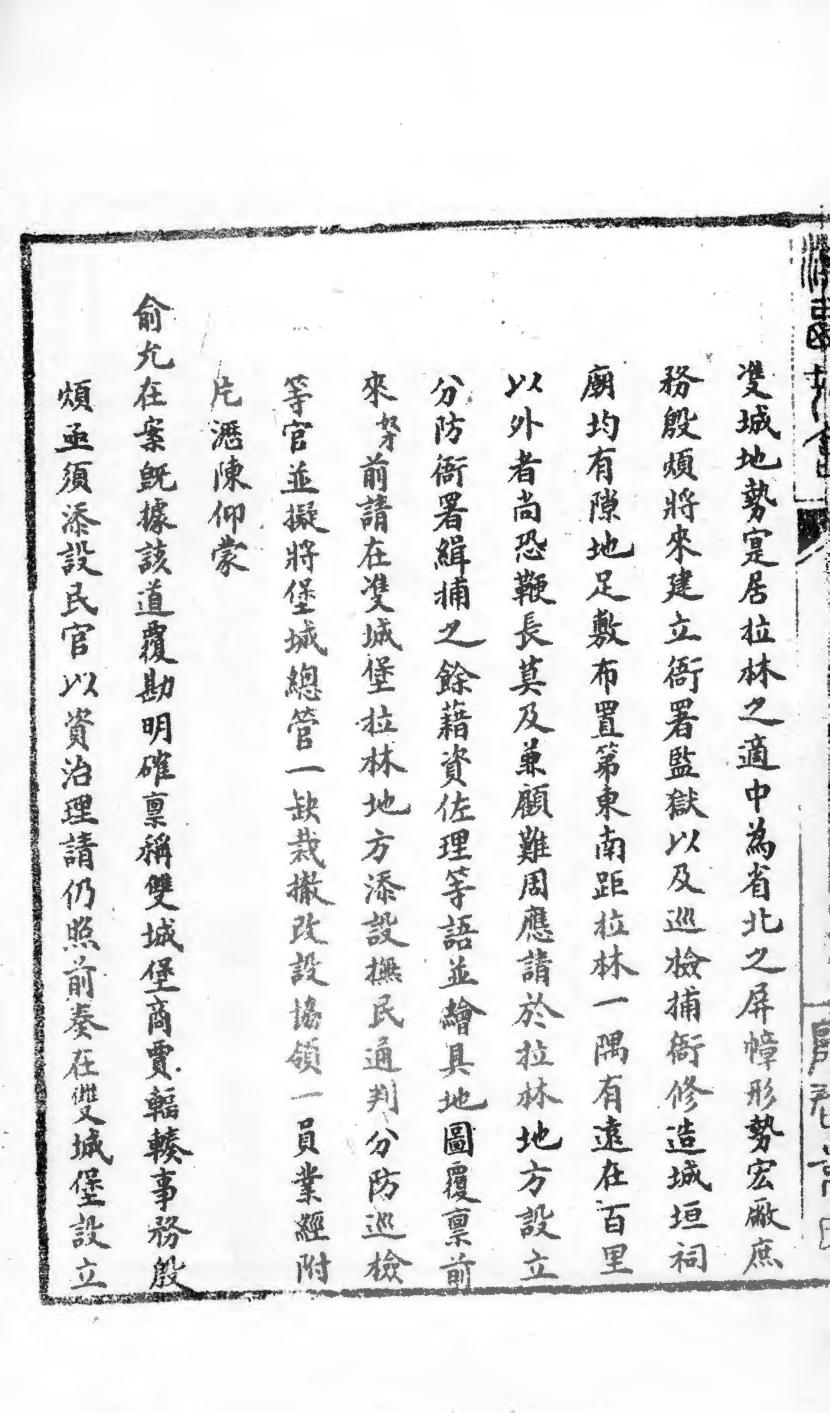 雙城地勢寔居拉林之適中為省北之屏幛形勢宏廠庶
務殷煩將來建立衙署監獄以及巡檢捕衙修造城垣祠
廟均有隙地足敷布置第東南距拉林一隅有遠在百里
以外者尚恐鞭長莫及兼顧難周應請於拉林地方設立
分防衙署緝捕之餘藉資佐理等語並繪具地圖覆稟前
來奴才前請在雙城堡拉林地方添設撫民通判分防巡檢
等官並擬將堡城總管一缺裁撤改設協領一員業經附
片瀝陳仰蒙
俞允在案既據該道覆勘明確稟稱雙城堡商賈輻輳事務殷
煩亟須添設民官以資治理請仍照前奏在雙城堡設立